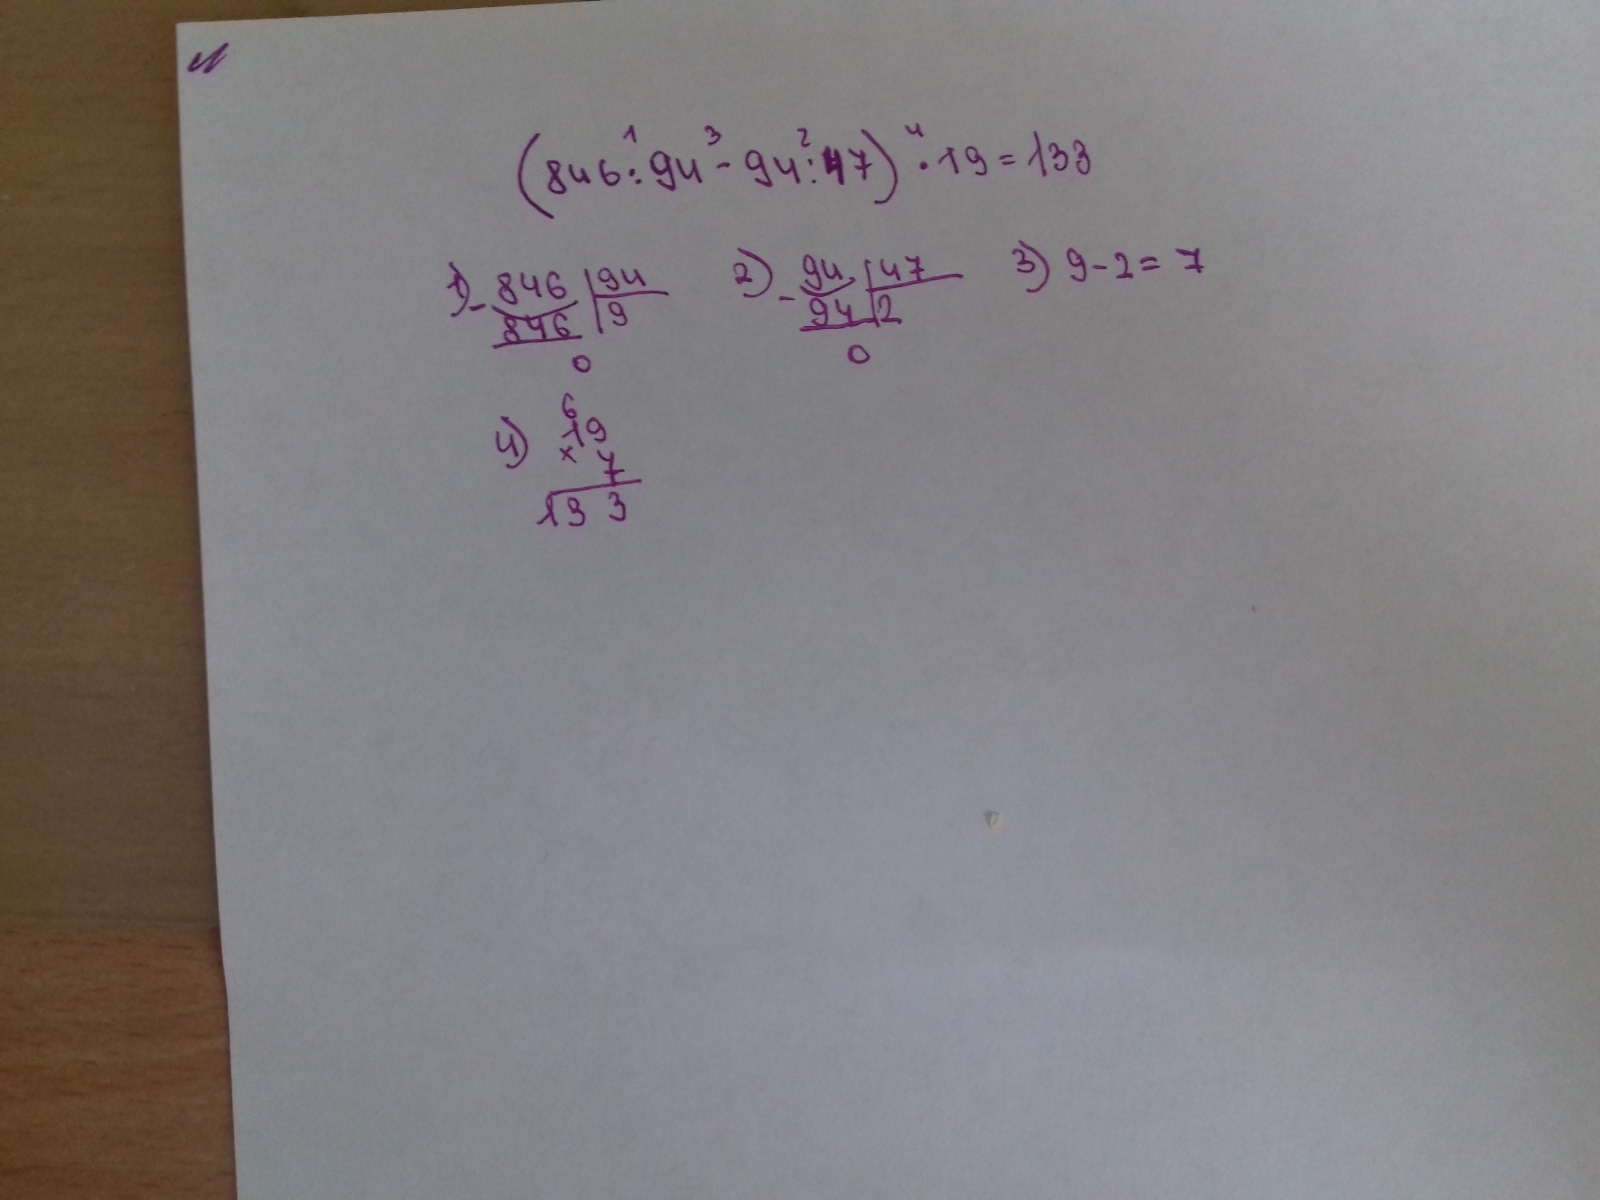 (846 : 94 - 94 : 47) · 19 = 133
1 3 2 4
1) - 846 | 94 2) - 94 | 47 3) 9 - 2 = 7
846 | 9 94 | 2
0 0
6
4) 19
× 7
133